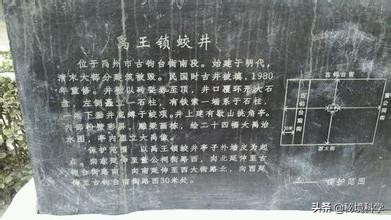 禹王锁蛟井
位于禹州市古钧台街南段。始建于明代，
清末大部分建筑被毁。民国时古井被填，1980
年重修。井被以砖竖券至顶，井口覆环形大石
盘，左侧矗立一石柱，有铁索一端系于石柱，
一端下垂井底缚于蛟项。井上建有歇山挑角亭，
内部粉壁彩屏，雕梁画栋，绘二十四幅大禹治
水图，亭内直立大禹像。
保护范围：以禹王锁蛟井亭子外墙为起
点，向东延伸至
向西延
伸至古钧台街路西30米处。
古钧台街
西大街
30米
保护范围
头条 @秘境科学